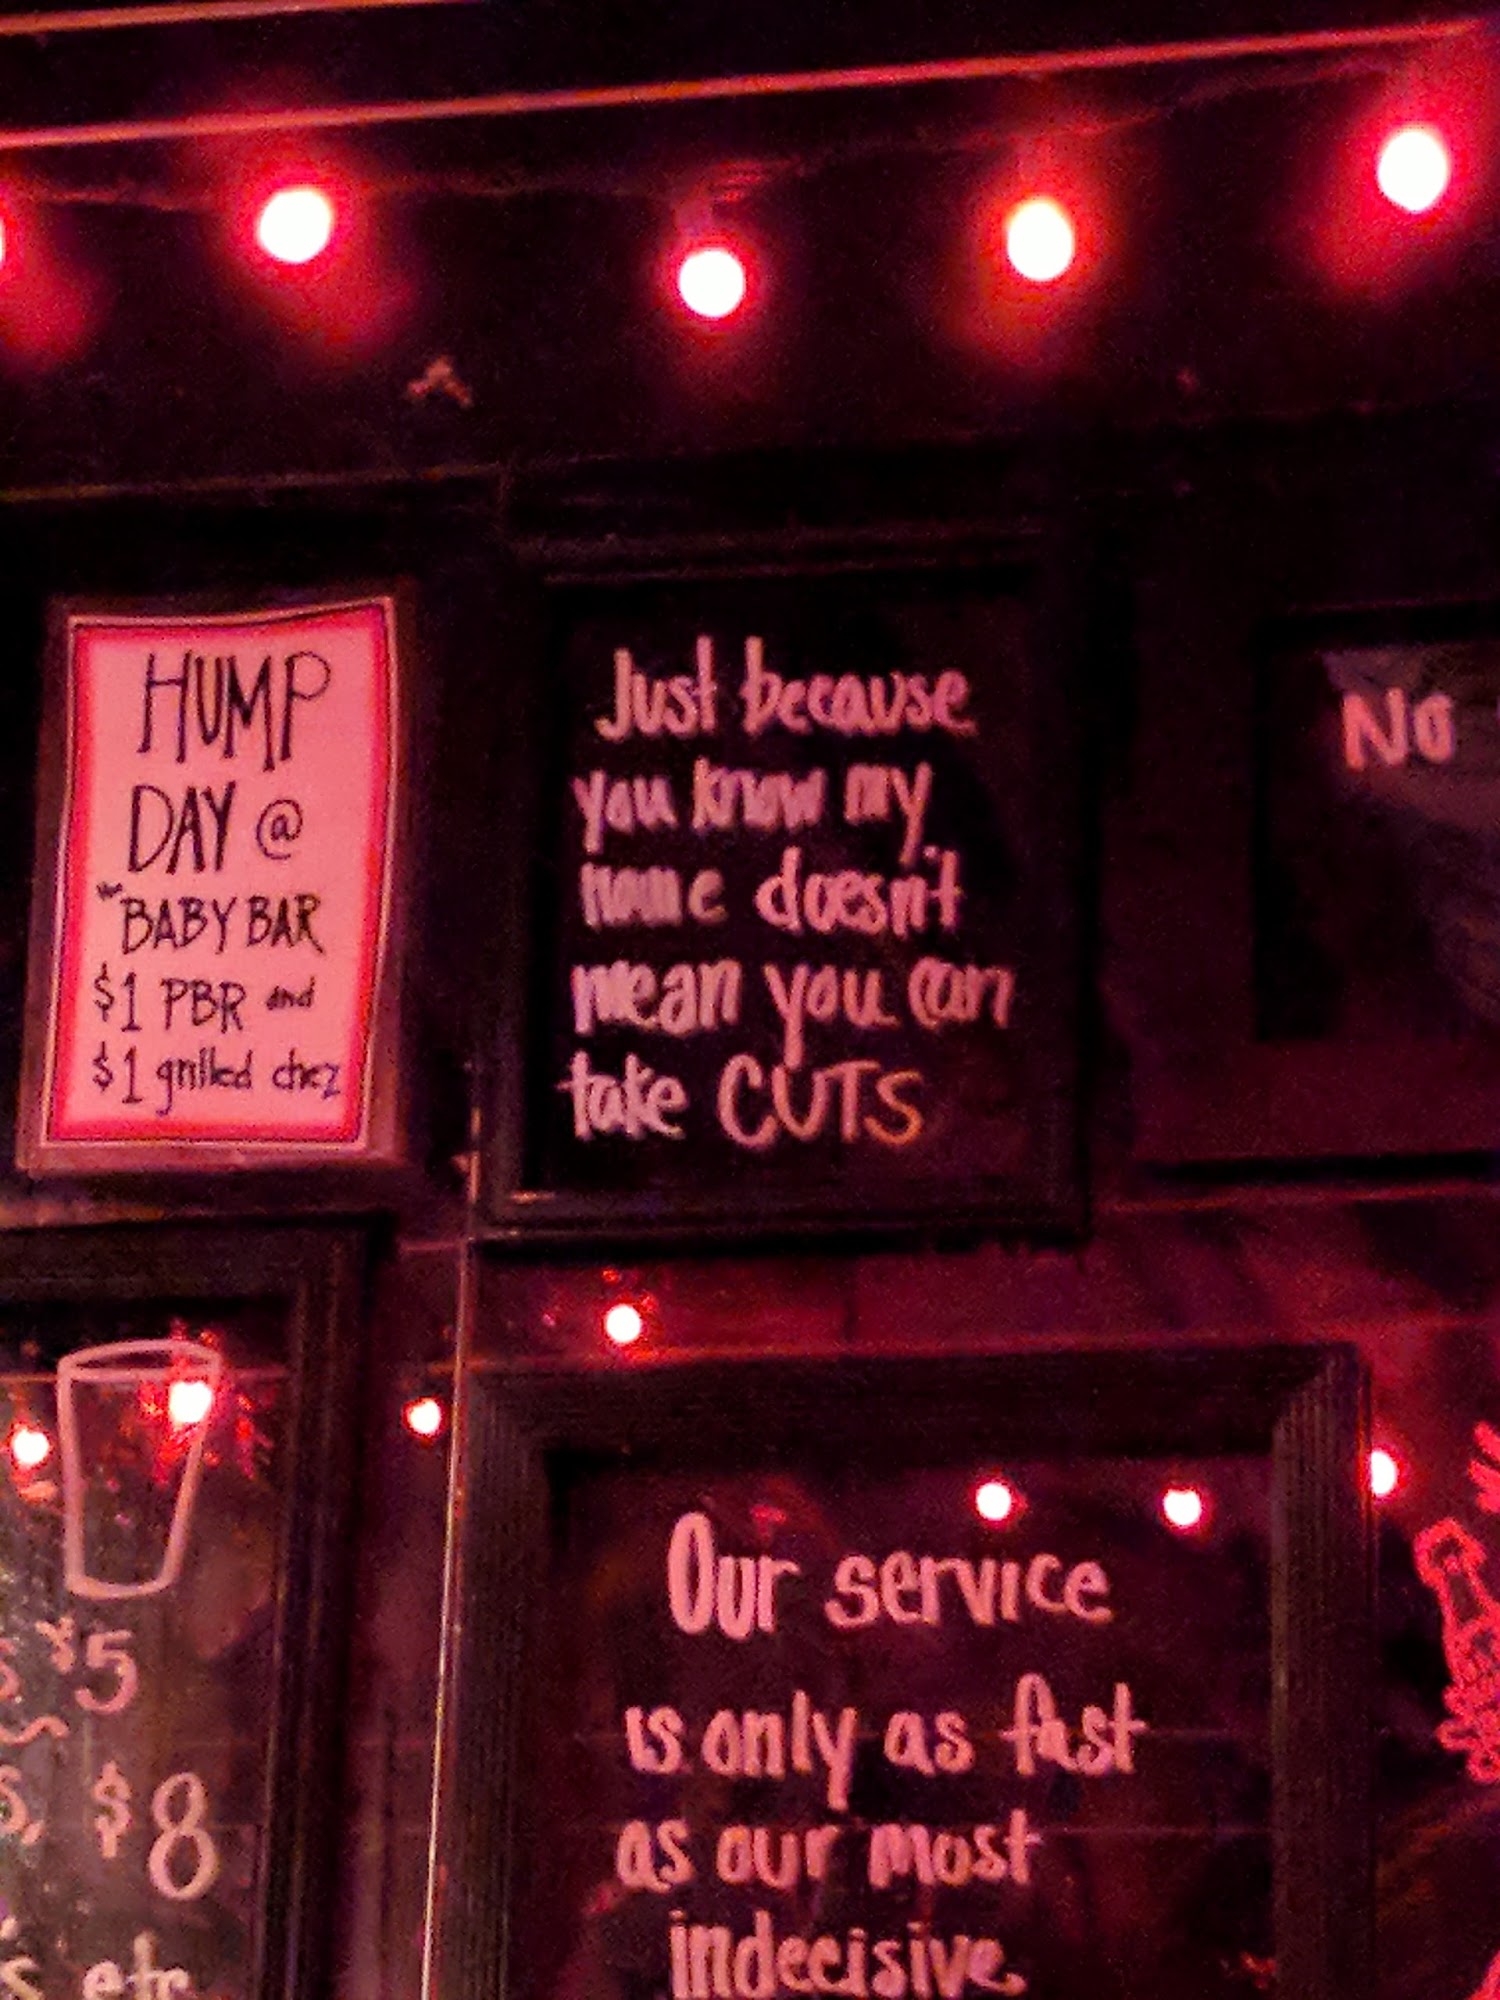 HUMP
DAY @
the BABY BAR
$1 PBR and
$1 grilled chez
Just because
you know my
name doesn't
mean you can
take CUTS
NO
$5
$8
etc
Our service
is only as fast
as our most
indecisive